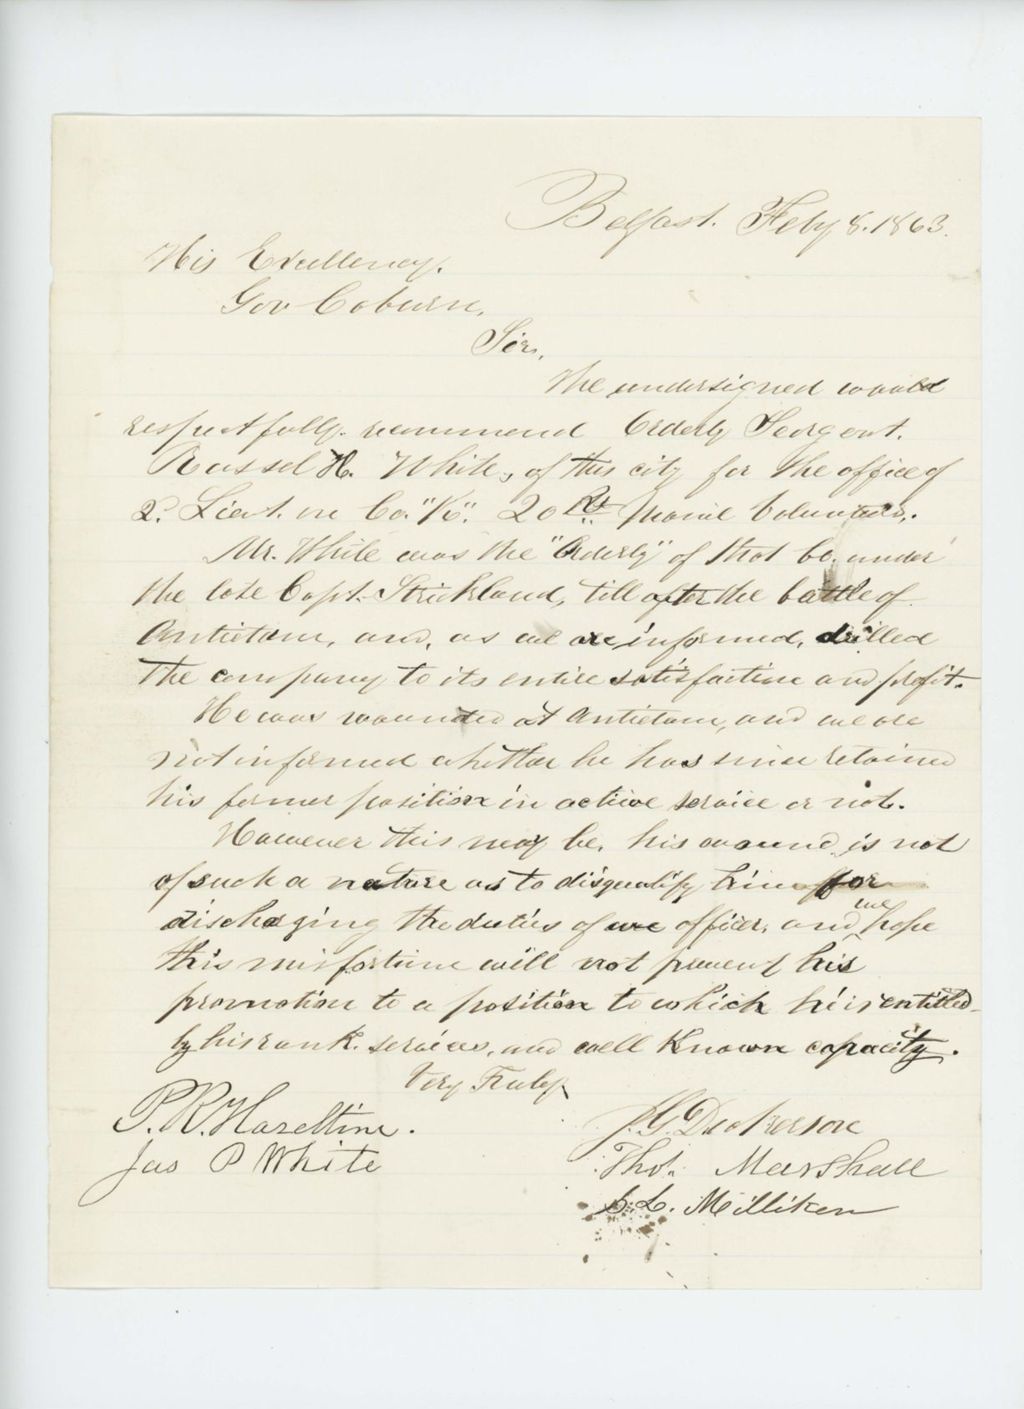 Belfast. Feby 8. 1863.
His Excellency.
Gov Coburn,
Sir,
The undersigned would
respectfully. recommend Orderly Sergent.
Russel H. White, of this city for the office of
2. Lieut. in Co. "K". 20 Rt Maine Volunteers.
Mr. White was the "Orderly" of that Co. under
the late Capt. Strickland, till after the battle of
Antietam, and, as we are informed, drilled
the company to its entire satisfaction and profit.
He was wounded at Antietam, and we are
not informed whether he has since retained
his former position in active service or not.
However this may be, his wound is not
of such a nature as to disqualify him for
discharging the duties of an officer, and we hope
this misfortune will not prevent his
promotion to a position to which he is entitled
by his rank. services, and well Known capacity.
Very Truly
P. R. Hazeltine.
Jas P White
J. G. Dickerson
Thos. Marshall
S. L. Milliken